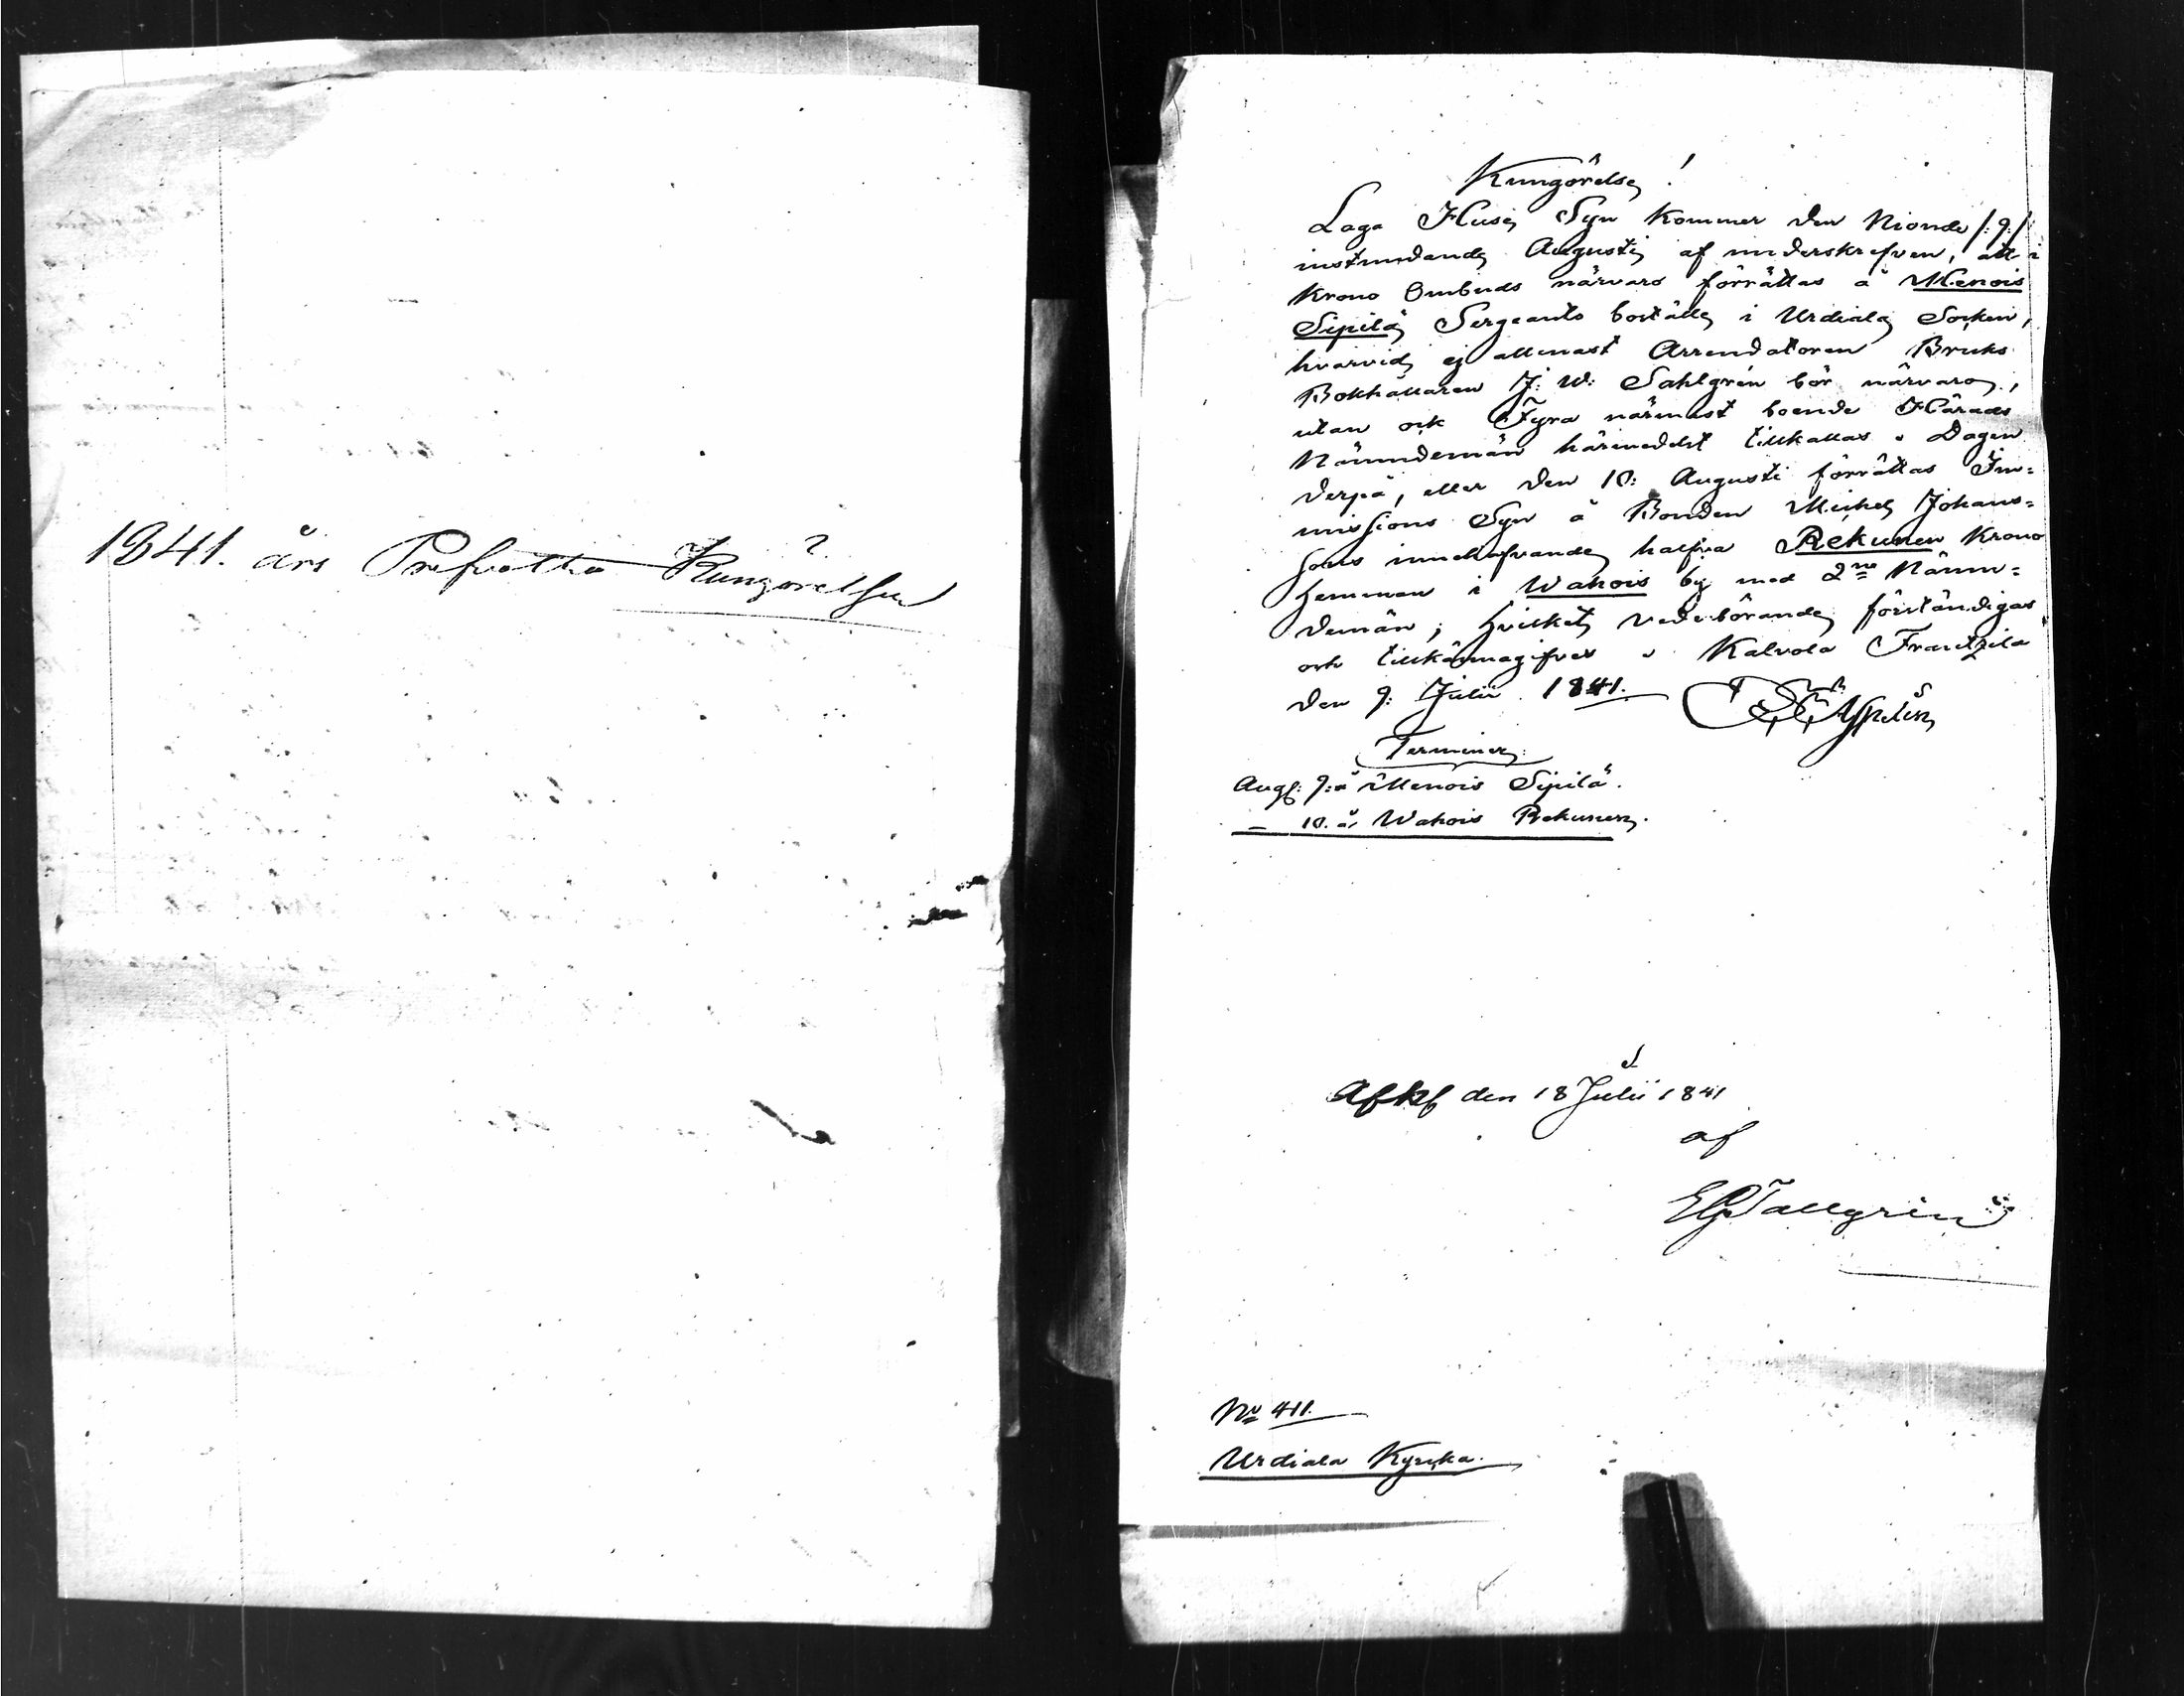 1841. års Prefvatta Kungörelser
Kungörelse!
Laga Huse Syn kommer den Nionde /:9:/
instundande Augusti af underskrefven, att i
Krono Ombuds närvaro förrättas å Menois
Sipilä Sergeants boställe i Urdiala Socken,
hvarvid ej allenast Arrendatoren Bruks
Bokhållaren J: W: Sahlgrén bör närvara,
utan ock Fyra närmast boende Härads
Nämndemän härmedelst tillkallas. Dagen
derpå, eller den 10: Augusti förrättas Im=
missions Syn å Bonden Michel Johans=
sons innehafvande halfva Rekunen Krono
hemman i Wahois by med 2ne Nämn=
demän; hvilket vederbörande förständigas
och tillkännagifves. Kalvola Frantzila
den 9: Julii 1841.
Terminer:
Aug: 9: å Menois Sipilä.
— 10. å, Wahois Rekunen.
den 18 Julii 1841
af
EG Tallgrén
No 411.
Urdiala Kyrka.